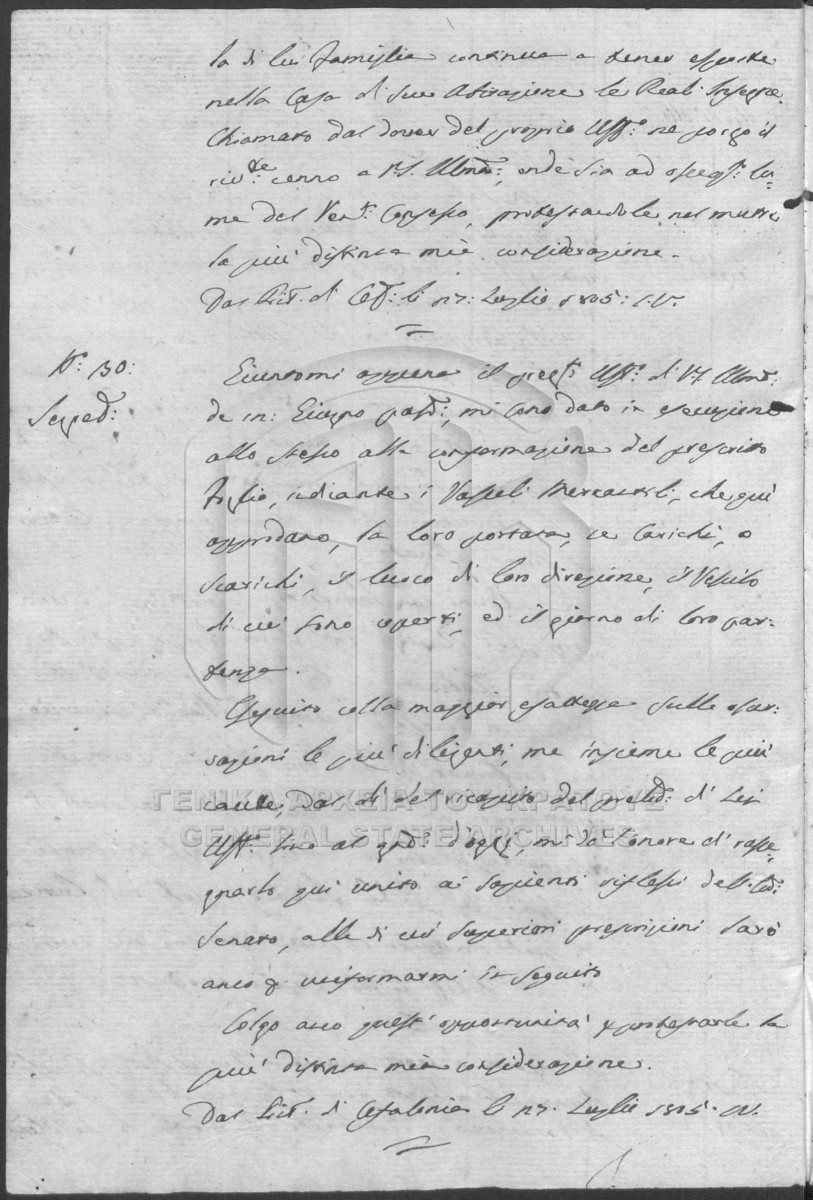 la di lui Famiglia continua a tener esposte
nella Casa di sua Abitazione le Reali Insegne.
Chiamato dal dover del proprio Uff:o ne porgo il
riv:te cenno a V.S. Illma:, onde sia ad osseq: lu=
me del Ven: Consesso, protestandole nel mentre
la più distinta mia considerazione.
Dal Pret: di Cef: li 17: Luglio 1805: S.V.
N:o 130:
Sequed:
Giuntomi appena il preg: Uff:o di V.S. Illma:
de in: Giugno pass:, mi sono dato in esecuzione
allo stesso alla conformazione del prescritto
Foglio, indicante i Vasseli Mercantili, che quì
approdano, la loro portata, se Carichi, o
Scarichi, il luoco di loro direzione, il Vessilo
di cui sono coperti, ed il giorno di loro par=
tenza.
Eseguito colla maggior esattezza sulle osser=
vazioni le più diligenti, ma insieme le più
caute, dal dì del recapito del preled: di Lei
Uff:o sino al gnd: d'oggi, mi dò l'onore di rasse=
gnarlo quì unito ai sapienti riflessi dell'
Senato, alle di cui Superiori prescrizioni sarò
anco p uniformarmi in seguito
Colgo anco quest'opportunità p protestarle la
più distinta mia considerazione.
Dal Pret: di Cefalonia li 17. Luglio 1805. S.V.
ΓΕΝΙΚΑ ΑΡΧΕΙΑ ΤΟΥ ΚΡΑΤΟΥΣ
GENERAL STATE ARCHIVES